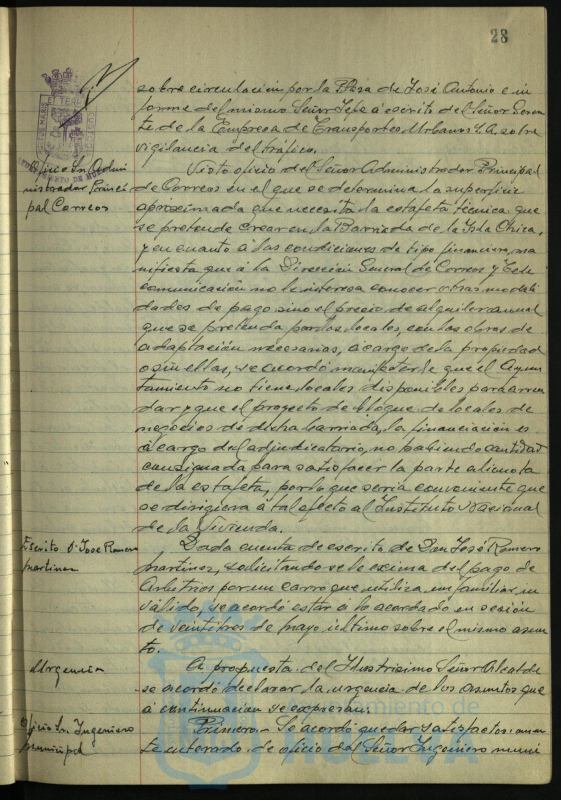 28
sobre circulación por la Plaza de José Antonio e in
forme del mismo Señor Jefe á escrito del Señor Geren
te de la Empresa de Transportes Urbanos S.A. sobre
vigilancia del tráfico.
Oficio Sr. Admi
nistrador Princi
pal Correos
Visto oficio del Señor Administrador Principal
de Correos en el que se determina la superficie
aproximada que necesita la estafeta técnica que
se pretende crear en la Barriada de la Isla Chica,
y en cuanto á las condiciones de tipo financiero, ma
nifiesta que á la Dirección General de Correos y Tele
comunicación no le interesa conocer otras modali
dades de pago sino el precio de alquiler anual
que se pretenda por los locales, con las obras de
adaptación necesarias, a cargo de la propiedad
o sin ellas, se acordó manifestarle que el Ayun
tamiento no tiene locales disponibles para arren
dar y que el proyecto de bloque de locales de
negocios de dicha barriada, la financiación es
á cargo del adjudicatario, no habiendo cantidad
consignada para satisfacer la parte alicuota
de la estafeta, por lo que sería conveniente que
se dirigiera á tal efecto al Instituto Nacional
de la Vivienda.
Escrito D. Jose Romero
Martinez
Dada cuenta de escrito de Don José Romero
Martinez, solicitando se le exima del pago de
Arbitrios por un carro que utiliza un familiar in
válido, se acordó estar a lo acordado en sesión
de veintitres de Mayo último sobre el mismo asun
to.
Urgencia
A propuesta del Ilustrísimo Señor Alcalde
se acordó declarar la urgencia de los asuntos que
á continuación se expresan:
Oficio Sr. Ingeniero
Municipal
Primero.- Se acordó quedar satisfactoriamen
te enterado de oficio del Señor Ingeniero muni
Ayuntamiento de
HUELVA